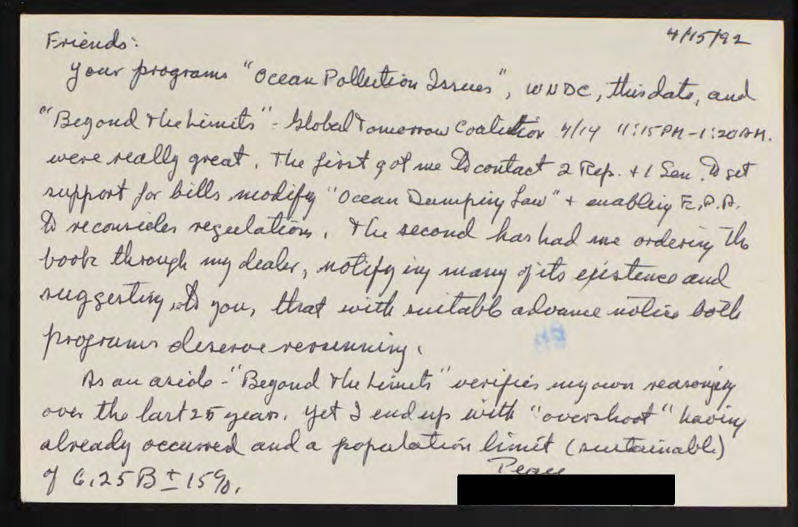 4/15/92
Friends:
Your programs "Ocean Pollution Issues", WNDC, this date, and
"Beyond The Limits" - Global Tomorrow Coalition 4/14 11:15PM-1:20AM.
were really great. The first got me to contact 2 Rep. + 1 Sen. to get
support for bills modify "Ocean Dumping Law" + enabling E.P.A.
to reconsider regulations. The second has had me ordering the
book through my dealer, notifying many of its existence and
suggesting, to you, that with suitable advance notice both
programs deserve rerunning.
As an aside - "Beyond The Limits" verifies my own reasoning
over the last 25 years. Yet I end up with "overshoot" having
already occurred and a population limit (sustainable)
of 6.25B ± 15%.
Peace